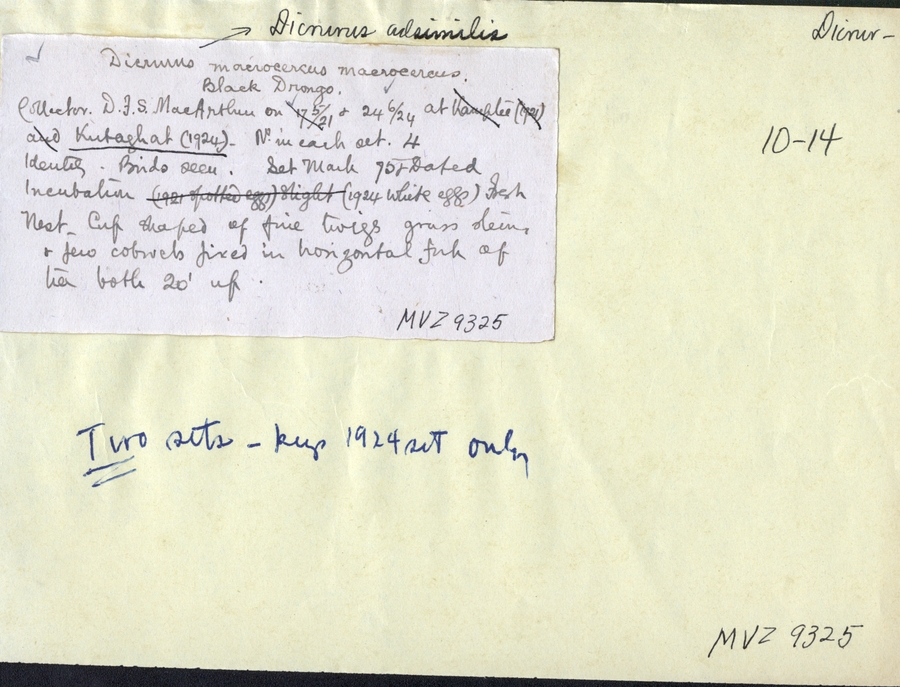 Dicrurus adsimilis
Dicrur-
Dicrurus macrocercus macrocercus.
Black Drongo.
Collector. D.F.S. MacArthur on 17 5/21 & 24 6/24 at Kamptee (1921)
and Kutaghat (1924). No. in each set. 4
Identity - Birds seen. Set Mark 75 Dated
Incubation (1921 spotted eggs) Slight (1924 white eggs) Fresh
Nest_ Cup shaped of fine twigs grass stems
& few cobwebs fixed in horizontal fork of
tree both 20' up.
MVZ 9325
10-14
Two sets - keep 1924 set only
MVZ 9325